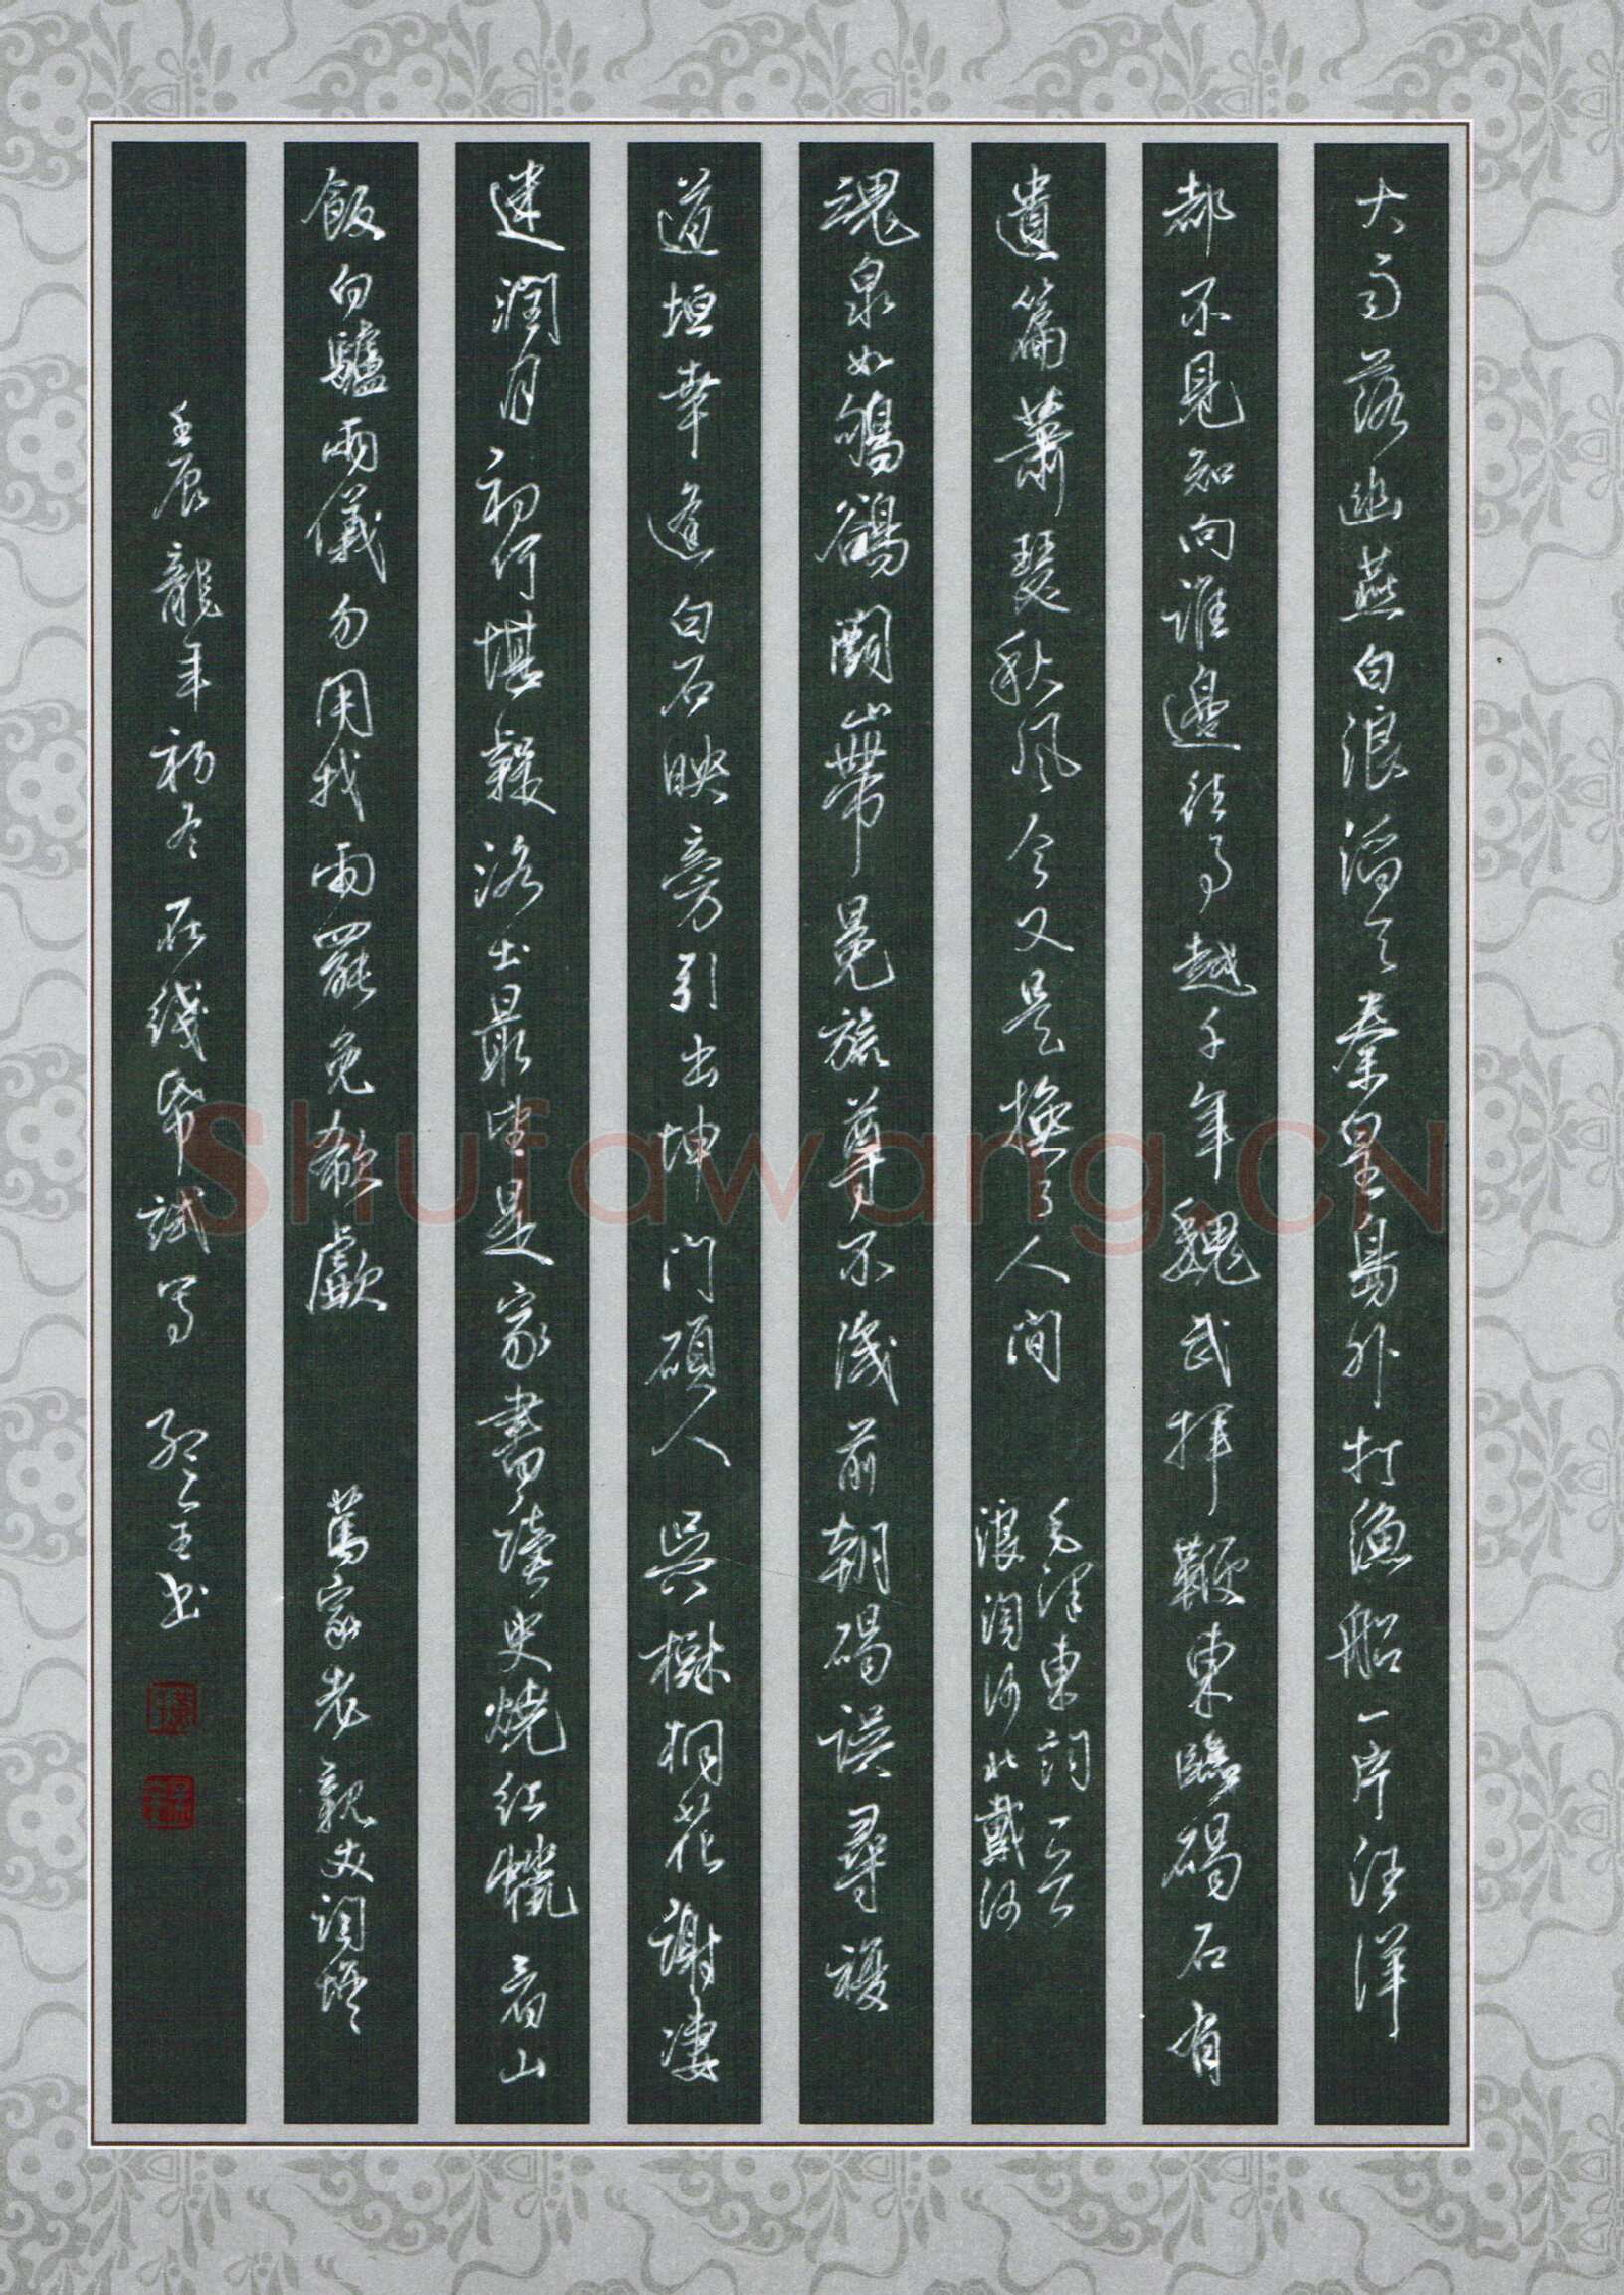 大雨落幽燕白浪滔天秦皇島外打漁船一片汪洋
都不見知向誰邊往事越千年魏武揮鞭東臨碣石有
遺篇蕭瑟秋風今又是換了人間
毛澤東詞一首
浪淘沙北戴河
魂泉如鴆鷂 鬭 帶冕旒尊不淺前朝碣誤尋複
道垣幸逢白石映旁引出坤門碩人吳樾桐花謝凄
迷潤月初何堪疑洛出最望是家書陸史燒紅 看山
飯向驢兩儀勿用找兩罷免欷歔
萬家老親友詞
壬辰龍年初冬在綫帋試寫 王书
Shufawang.CN